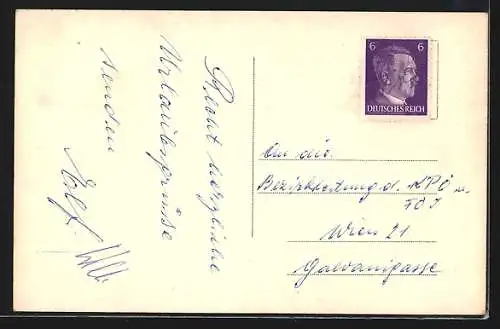 Recht herzliche
Urlaubsgrüsse
senden
6 6
DEUTSCHES REICH
An die
Bezirksleitung d. KPÖ u.
FÖJ
Wien 21
Galvanigasse